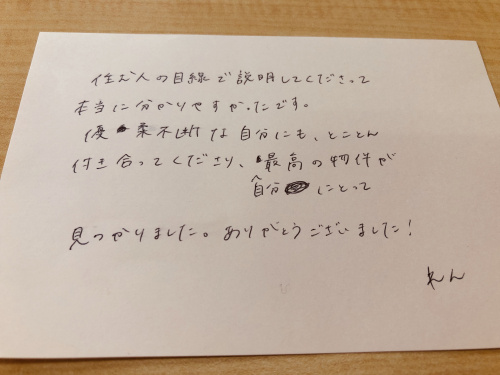 住む人の目線で説明してくださって
本当に分かりやすかったです。
優柔不断な自分にも、とことん
付き合ってくださり、最高の物件が
自分にとって
見つかりました。ありがとうございました！
れん